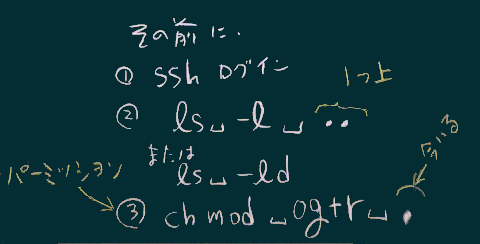 その前に、
① ssh ログイン
1つ上
② ls␣-l␣..
または
ls␣-ld
パーミッション
③ chmod␣og+r␣.